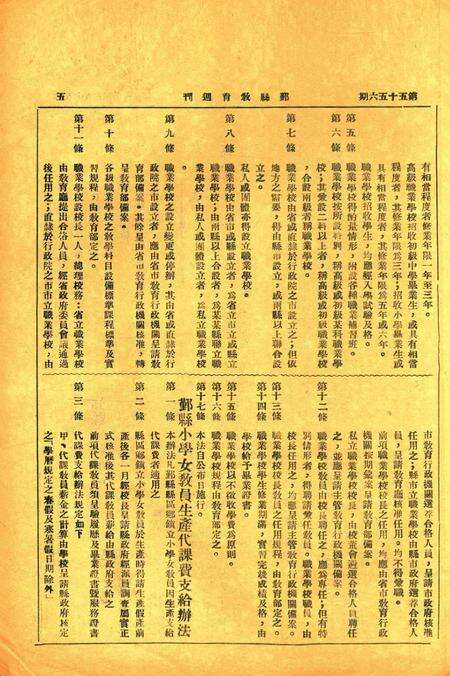 第五十五六期
鄞縣教育週刊
五
有相當程度者修業年限一年至三年。
高級職業學校招收初級中學畢業生,或具有相當
程度者,其修業年限為三年;招收小學畢業生或
具有相當程度者,其修業年限為五年或六年。
職業學校招收學生,均應經入學試驗及格。
第五條 職業學校得酌量情形,附設各種職業補習班。
第六條 職業學校按所設科別,稱高級或初級某科職業學
校;其兼設二科以上者,稱高級或初級職業學校
,合設兩級者稱職業學校。
第七條 職業學校,由省或直隸於行政院之市設立之;但依
地方之需要,得由縣市設立,或兩縣以上聯合設
立之。
私人或團體亦得設立職業學校。
第八條 職業學校由省市或縣市設立者,為省立市立或縣立
職業學校;由兩縣以上合設者,為某某縣聯立職
業學校,由私人或團體設立者,為私立職業學校
。
第九條 職業學校之設立變更或停辦,其由省或直隸於行
政院之市設立者,應由省市教育行政機關呈請教
育部備案。其餘呈由省市教育行政機關核准,轉
呈教育部備案。
第十條 各級職業學校之教學科目設備標準課程標準及實
習規程,由教育部定之。
第十一條 職業學校設校長一人,總理校務;省立職業學校
由教育廳提出合格人員,經省政府委員會議通過
後任用之;直隸於行政院之市市立職業學校,由
市教育行政機關選荐合格人員,呈請市政府核准
任用之;縣市立職業學校由縣市政府選荐合格人
員,呈請教育廳核准任用,均不得兼職。
前項職業學校校長之任用,均應由省市教育行政
機關按期彙案呈請教育部備案。
私立職業學校校長,由校董會遴選合格人員聘任
之,並應呈請主管教育行政機關備案。
第十二條 職業學校教員由校長聘任之,應為專任;但有特
別情形者,得聘請兼任教員。職業學校職員,由
校長任用之,均應呈請主管教育行政機關備案。
第十三條 職業學校校長教員之任用規程,由教育部定之。
第十四條 職業學校學生修業期滿,實習完竣成績及格,由
學校給予畢業證書。
第十五條 職業學校以不徵收學費為原則。
第十六條 職業學校規程由教育部定之。
第十七條 本法自公布日施行。
鄞縣小學女教員生產代課費支給辦法
第一條 本辦法凡鄞縣縣區鄉鎮立小學女教員因生產支給
代課費者適用之
第二條 縣區鄉鎮立小學女教員於生產時得請生產假產前
產後各一月由縣校長呈請縣政府經派員調查鄙實正
式核准後其代課教員薪給由縣政府支給之
前項代課教員須呈驗履歷及畢業證書暨服務證書
第三條 代課費支給辦法規定如下
甲、代課教員薪金之計算由學校呈請縣政府核定
之「學曆規定之春假及寒暑假日期除外」